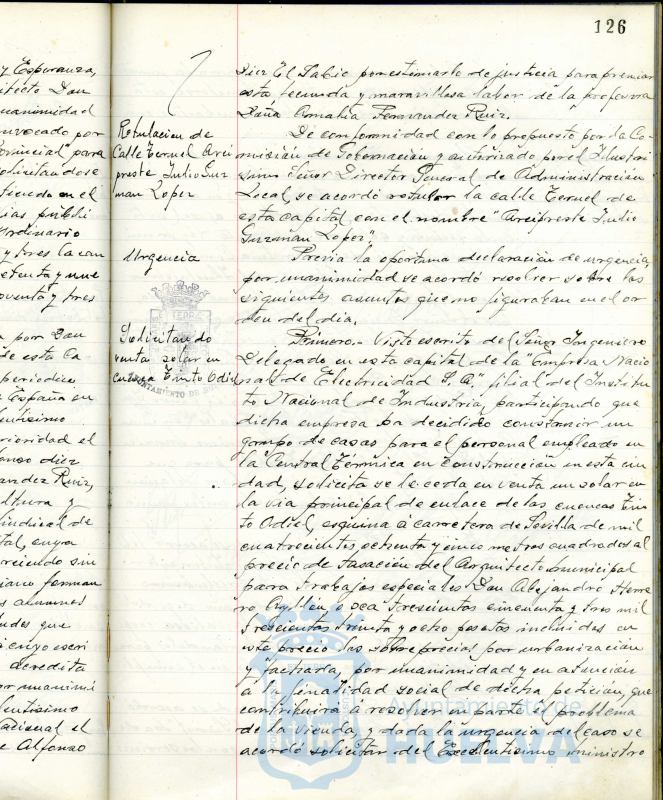 126
y Esperanza,
Don
unanimidad
nvocado por
Provincial" para
olicitandose
en el
ordinario
y tres
por Don
de esta Ca
periodico
España en
rioridad el
fonso diez
andez Ruiz,
ltura y
indical de
tal, cuya
forman
alumnos
que
acredita
or unanimi
lentisimo
Nacional el
e Alfonso
Rotulacion de
Calle Teruel Arci
preste Julio Guz
man Lopez
Urgencia
Solicitando
venta solar en
cuenca Tinto Odiel
AYUNTAMIENTO DE
Diez El Sabio por estimarlo de justicia para premiar
esta fecunda y maravillosa labor de la profesora
Doña Amalia Fernandez Ruiz.
De conformidad con lo propuesto por la Co-
misión de Gobernación y autorizado por el Ilustri
simo Señor Director General de Administración
Local, se acordó rotular la calle Teruel de
esta capital con el nombre "Arcipreste Julio
Guzman Lopez",
Previa la oportuna declaración de urgencia,
por unanimidad se acordó resolver sobre los
siguientes asuntos que no figuraban en el or
den del dia.
Primero.- Visto escrito del Señor Ingeniero
Delegado en esta capital de la "Empresa Nacio
nal de Electricidad S.A." filial del Institu
to Nacional de Industria, participando que
dicha empresa ha decidido construir un
grupo de casas para el personal empleado en
la Central Térmica en construcción en esta ciu
dad, solicita se le ceda en venta un solar en
la via principal de enlace de las cuencas Tin
to Odiel, esquina á carretera de Sevilla de mil
cuatrocientos setenta y cinco metros cuadrados al
precio de tasación del Arquitecto municipal
para trabajos especiales Don Alejandro Herre
ro Ayllón, o sea trescientas cincuenta y tres mil
trescientas treinta y ocho pesetas incluidos en
este precio las sobreprecios por urbanización
y fachada, por unanimidad y en atención
a la finalidad social de dicha petición, que
contribuirá a resolver en parte el problema
de la vivienda, y dada la urgencia del caso se
acordó solicitar del Excelentisimo ministro
Ayuntamiento de
HUELVA